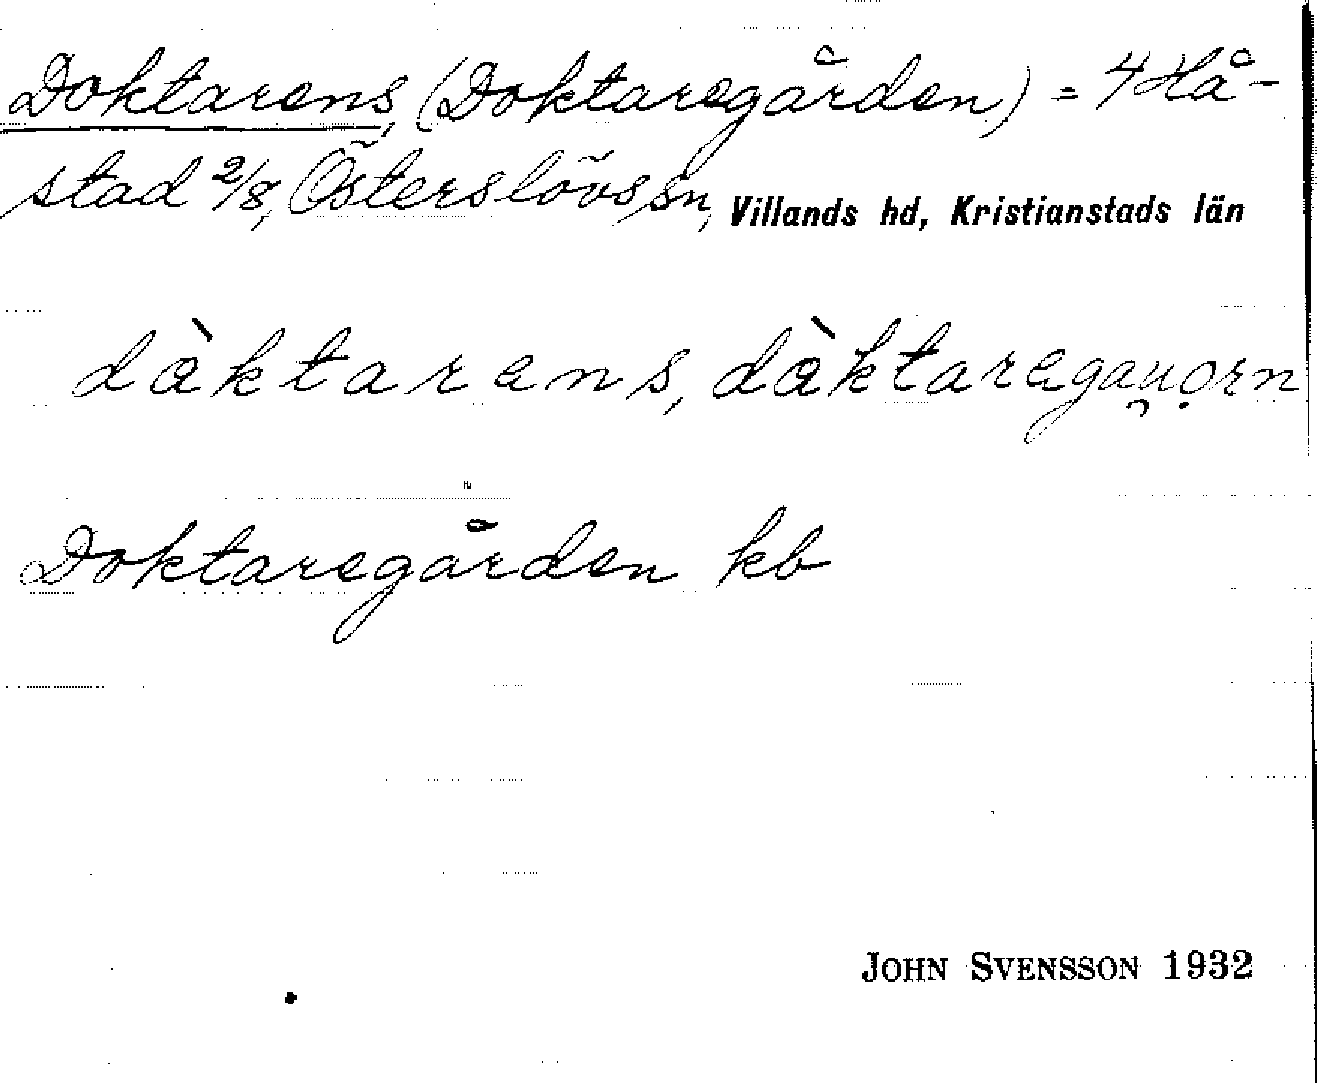 Doktarens, (Doktaregården) = 4 Hå-
stad 2/8, Österslövs sn, Villands hd, Kristianstads län
dàktarens, dàktaregauorn
Doktaregården kb
JOHN SVENSSON 1932